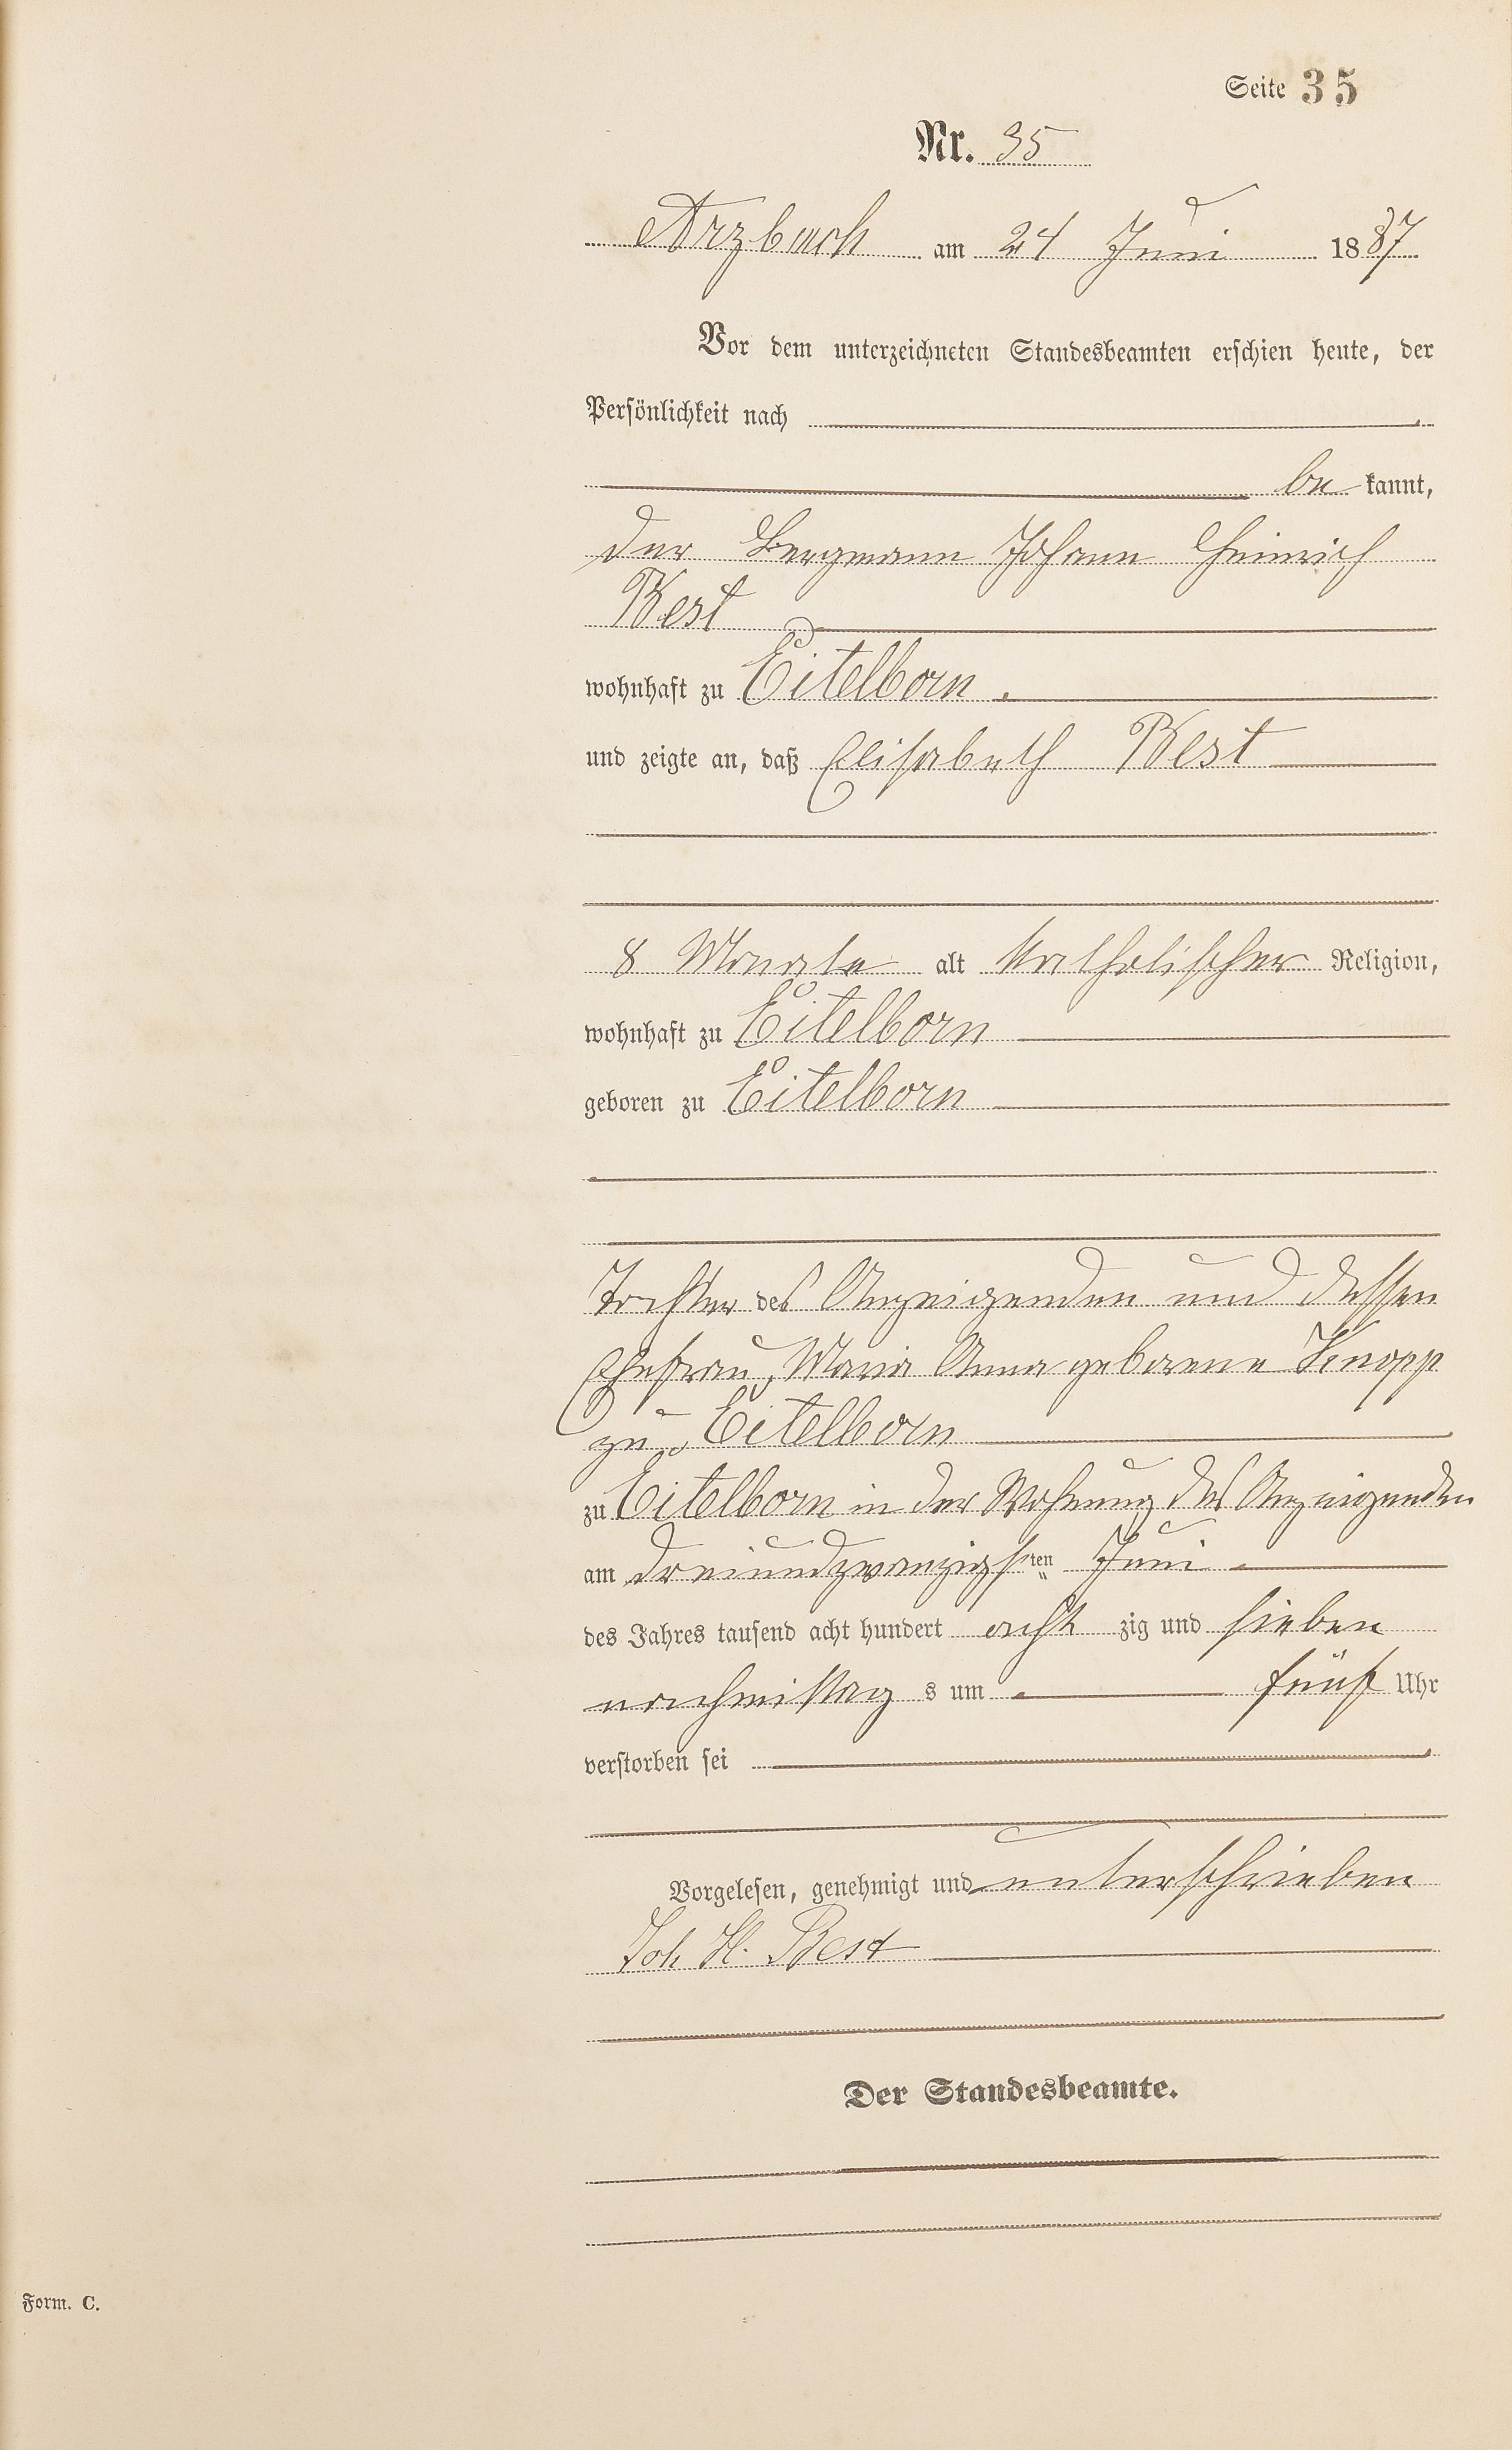 Seite 35
Nr. 35
Arzbach am 24 Juni 1887
Vor dem unterzeichneten Standesbeamten erschien heute, der
Persönlichkeit nach
be kannt,
der Bergmann Johann Heinrich
Best
wohnhaft zu Eitelborn.
und zeigte an, daß Elisabeth Best
8 Monate alt katholischer Religion,
wohnhaft zu Eitelborn
geboren zu Eitelborn
Tochter des Anzeigenden und dessen
Ehefrau, Maria Anna geborene Knopp
zu Eitelborn
zu Eitelborn in der Wohnung des Anzeigenden
am dreiundzwanzigsten Juni
des Jahres tausend acht hundert acht zig und sieben
nachmittag s um fünf Uhr
verstorben sei
Vorgelesen, genehmigt und unterschrieben
Joh H. Best
Der Standesbeamte.
Form. C.